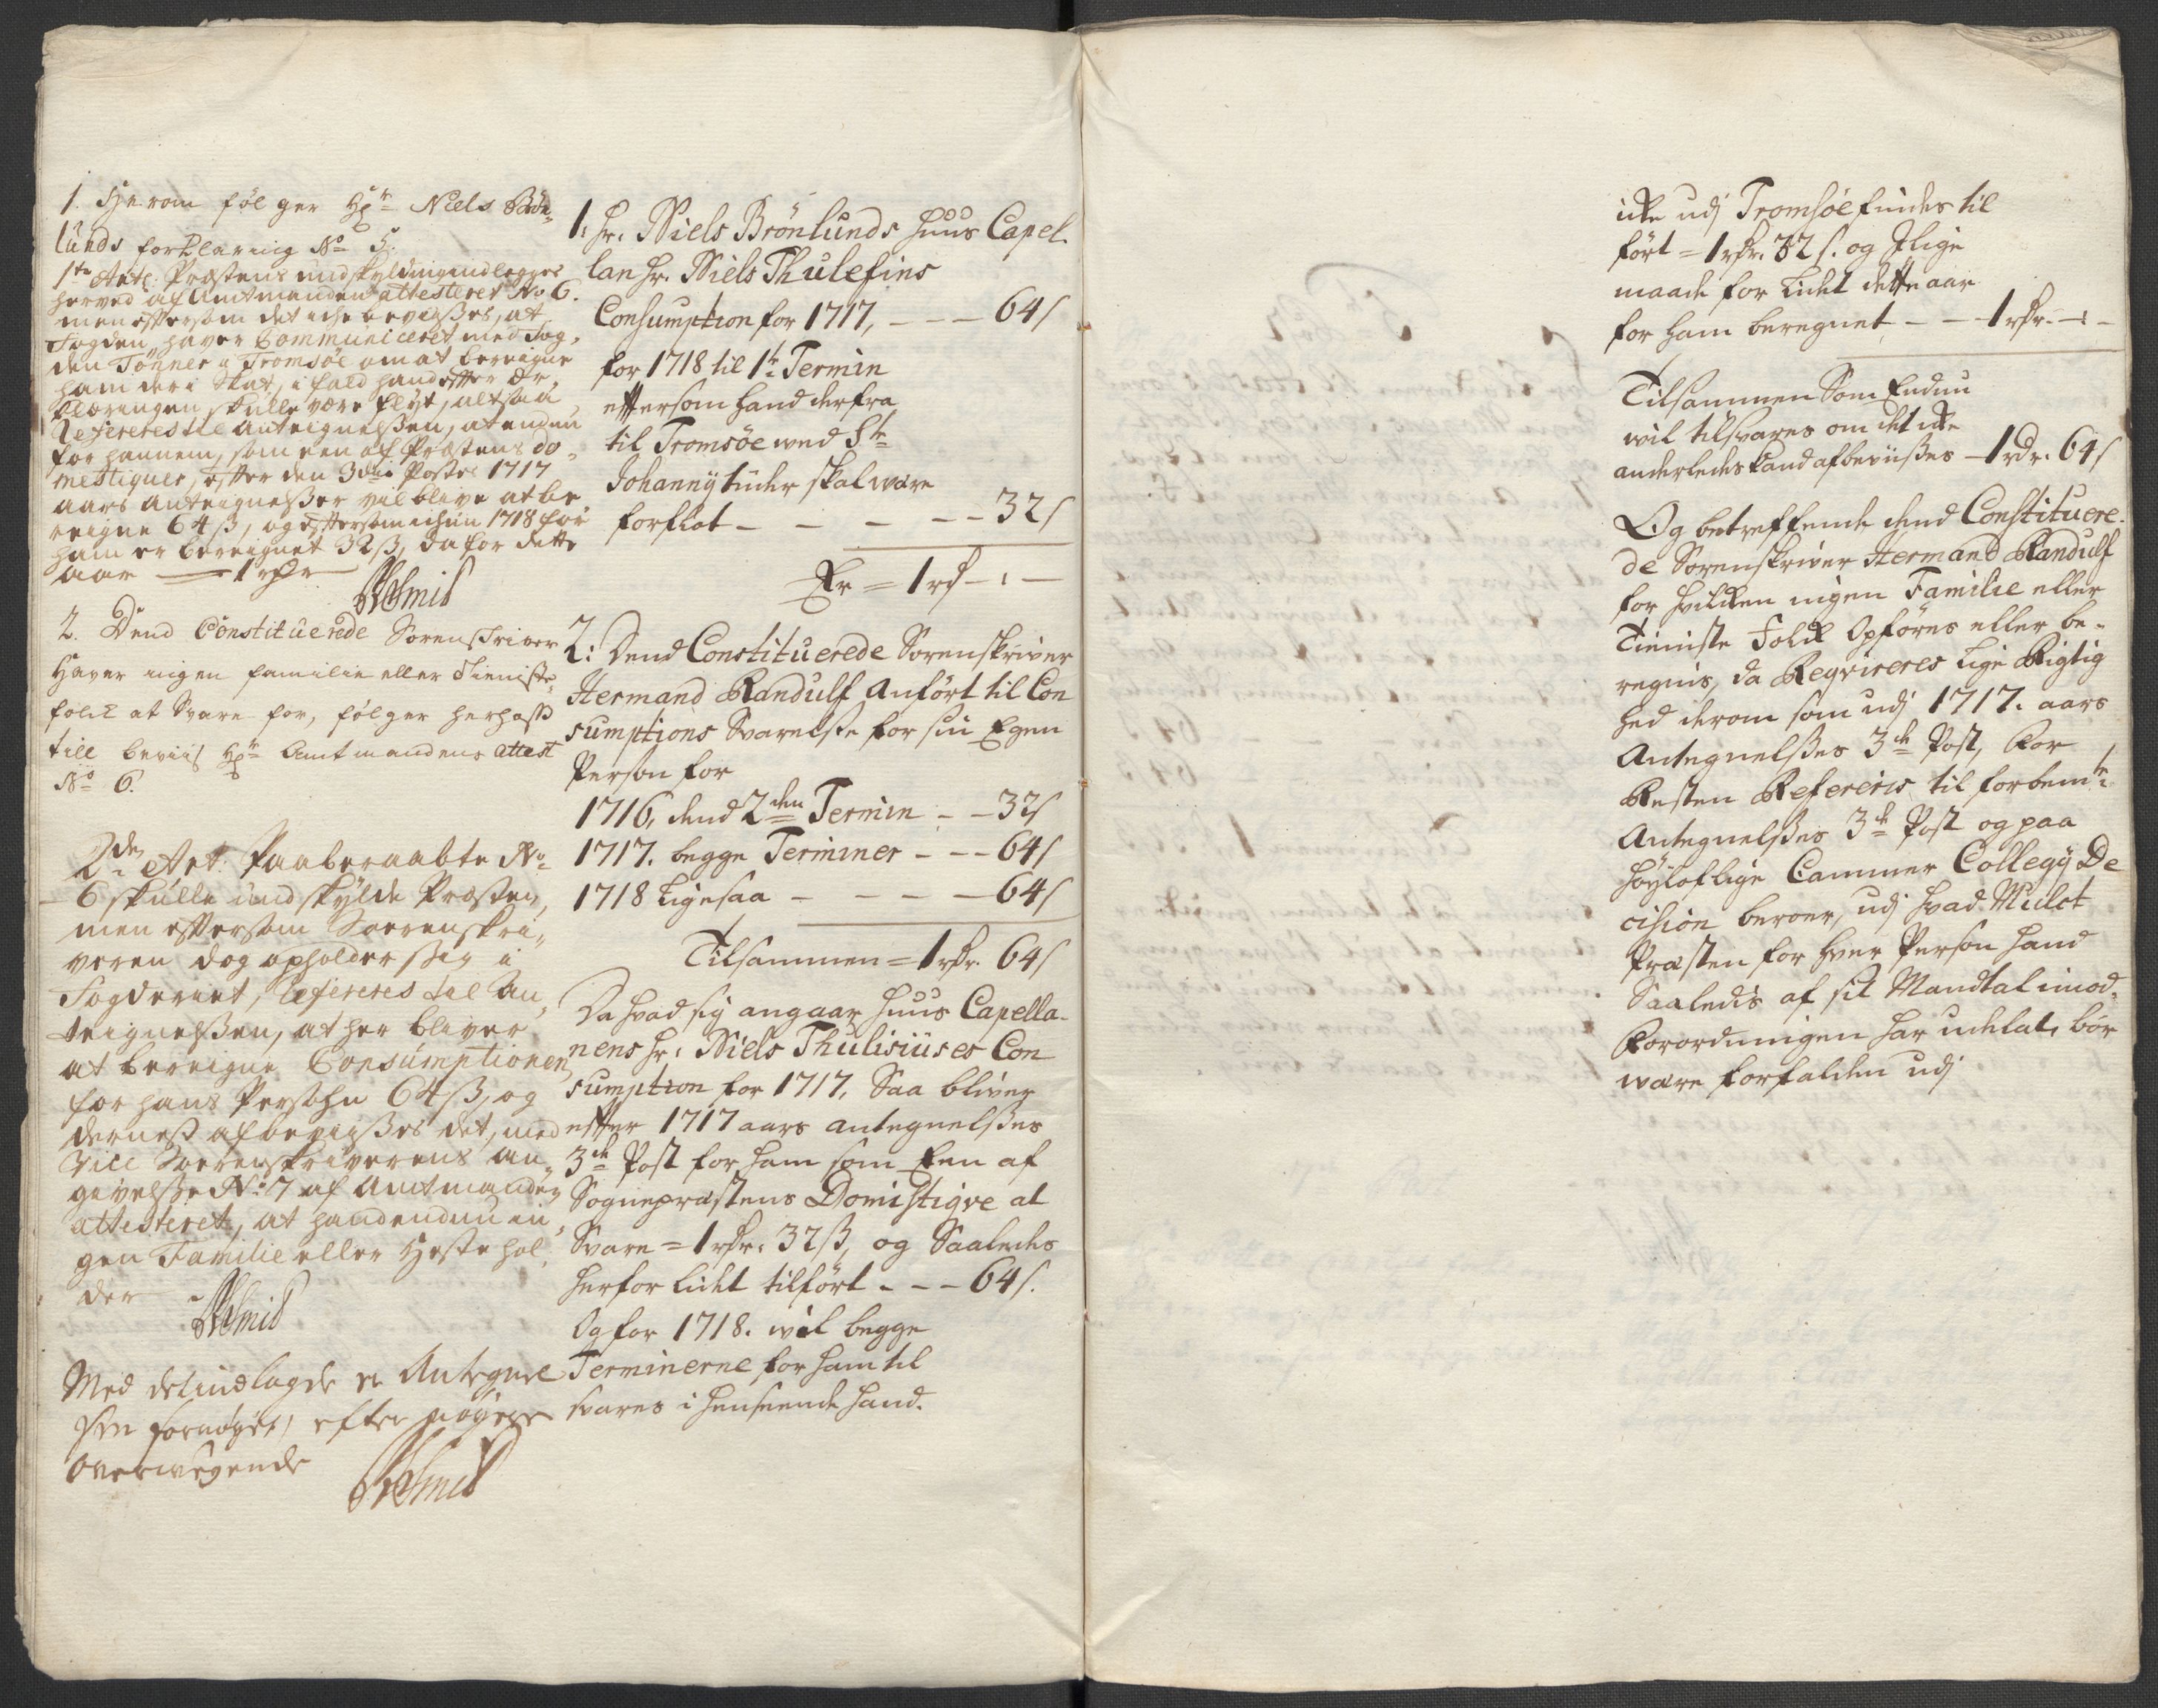 1. Herom følger Hr. Niels Brön-
lunds forklaring No 5.
1ste Art: Præstens undskyldning indlegges
herved af Amtmanden attesteret No 6.
men eftersom det iche bevisses, at
Fogden haver Communiceret med Fog-
den Tönner i Tromsöe om at bereigne
ham der i Skat, i fald hand efter Er-
klæringen skulle være flyt, altsaa
Refereres til Anteignelssen, at endnu
for hannem, som een af Præstens do-
mestiquer, efter den 3die Postes 1717
aars Anteignelsser vil blive at be
reigne 64 ß, og eftersom ichun 1718 for
ham er bereignet 32 ß, da for dette
aar — 1 rdr
Smid
2. Dend Constituerede Sorenskriver
Haver ingen familie eller Tieniste
folck at Svare for, følger herhoss
till beviis Hr Amtmandens attest
No 6.
2den Art: Paaberaabte No
6 skulle undskylde Præsten,
men eftersom Soerenskri-
veren dog opholder sig i
Fogderiet, refereres til An-
teignelssen, at her bliver
at bereigne Consumptionen
for hans Persohn 64 ß, og
dernest afbevisses det, med
Sorenskriverens an-
givelsse No 7 af Amtmanden
attesteret, at hand endnu in-
gen Familie eller Heste hol-
der
Smid
Med det indlagde er Antegnel
sen fornøyet, efter nøyere
overweyende
Smid
1: Hr. Niels Brönlunds Huus Capel-
lan Hr. Niels Thulesius
Consumption for 1717, — — — 64 s
for 1718 til 1te Termin
eftersom hand derfra
til Tromsöe wed Ste
Johanny tider skal være
forflöt — — — — — 32 s
Er = 1 rd — : —
2: Dend Constituerede Sorenskriver
Hermand Randulf Anfört til Con
sumptions Svarelse for sin Egen
Person for
1716, dend 2den Termin — — 32 s
1717. begge Terminer — — — 64 s
1718 Ligesaa — — — — 64 s
Tilsammen = 1 rdr. 64 s
Da hvad sig angaar Huus Capella-
nens Hr: Niels Thulisiuses Con
sumption for 1717, Saa bliver
efter 1717 aars antegnelsses
3de Post for ham som Een af
Sognepræstens Domistiqve at
Svare = 1 rdr: 32 ß, og Saaledes
herfor lidet tilfört — — — 64 s.
Og for 1718. wil begge
Terminerne for ham til
svares i henseende hand.
icke udj Tromsöe findes til
fört = 1 rdr. 32 s. og Ilige
maade for Lidet dette aar
for ham beregnet — — 1 rdr. — : —
Tilsammen Som Endnu
wil tilsvares om det icke
anderledes kand afbeviisses — 1 rdr. 64 s
Og betreffende dend Constituere-
de Sorenskriver Hermand Randulf
for hvilken ingen Familie eller
Tieniste Folck Opföres eller be-
regnis, da Reqvireres Lige Rigtig
hed derom som udj 1717. aars
Antegnelsses 3de Post, For
Resten Refereris til forbemte
Antegnelsses 3de Post og paa
Höyloflige Cammer Collegy De
cision beroer, udj hvad Mulct
Præsten for hver Person hand
Saaledis af sit Mandtal imod
Forordningen har udelat, bör
være forfalden udj